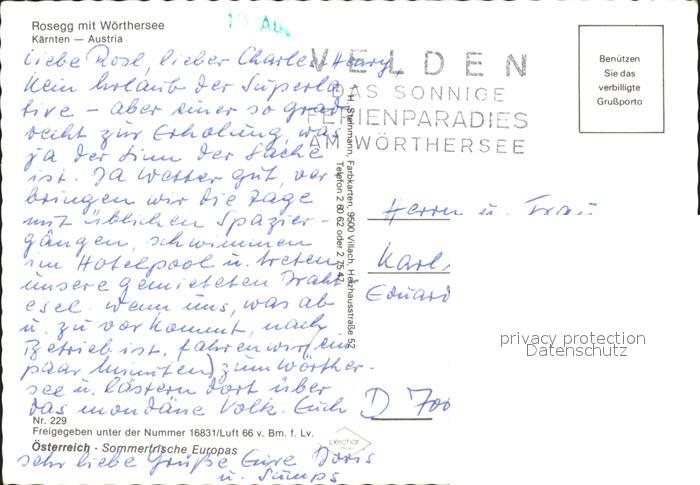 Rosegg mit Wörthersee
Kärnten — Austria
Liebe Rosl, lieber Charles Henry
Kein Urlaub der Superla
tive – aber einer so grad
recht zur Erholung, was
ja der Sinn der Sache
ist. Da Wetter gut, ver
bringen wir die Tage
mit üblichen Spazier-
gängen, schwimmen
im Hotelpool u. treten
unsere gemieteten Draht
esel. Wenn uns, was ab
u. zu vorkommt, nach
Betrieb ist, fahren wir (ein
paar Minuten) zum Wörther-
see u. lästern dort über
das mondäne Volk. Euch
Nr. 229
Freigegeben unter der Nummer 16831/Luft 66 v. Bm. f. Lv.
Österreich - Sommerfrische Europas
sehr liebe Grüße Eure Doris
u. Sumps
H. Steinmann, Farbkarten, 9500 Villach, Heizhausstraße 62
Telefon 2 60 62 oder 2 75 47
VELDEN
DAS SONNIGE
FERIENPARADIES
AM WÖRTHERSEE
Benützen
Sie das
verbilligte
Grußporto
Herrn u. Frau
Karl
Eduard
D 700
privacy protection
Datenschutz